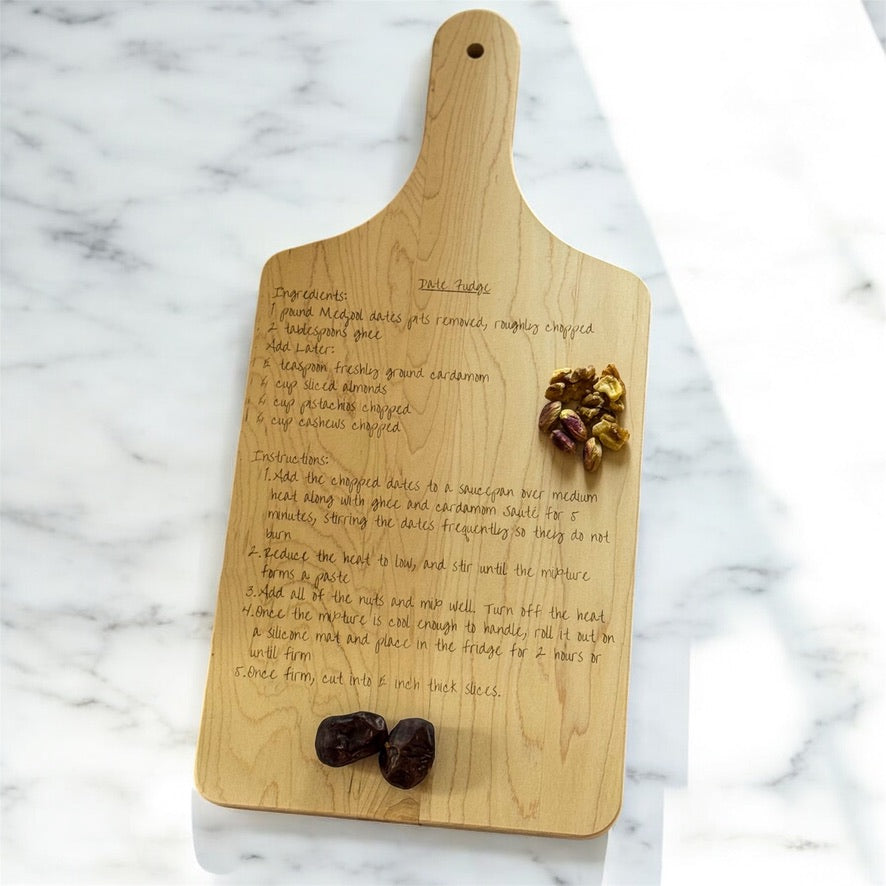 Date Fudge
Ingredients:
1 pound Medjool dates pits removed, roughly chopped
2 tablespoons ghee
Add Later:
teaspoon freshly ground cardamom
cup sliced almonds
cup pistachios chopped
cup cashews chopped
Instructions:
1. Add the chopped dates to a saucepan over medium
heat along with ghee and cardamom Sauté for 5
minutes, stirring the dates frequently so they do not
burn
2. Reduce the heat to low, and stir until the mixture
forms a paste
3. Add all of the nuts and mix well. Turn off the heat
4. Once the mixture is cool enough to handle, roll it out on
a silicone mat and place in the fridge for 2 hours or
until firm
5. Once firm, cut into inch thick slices.